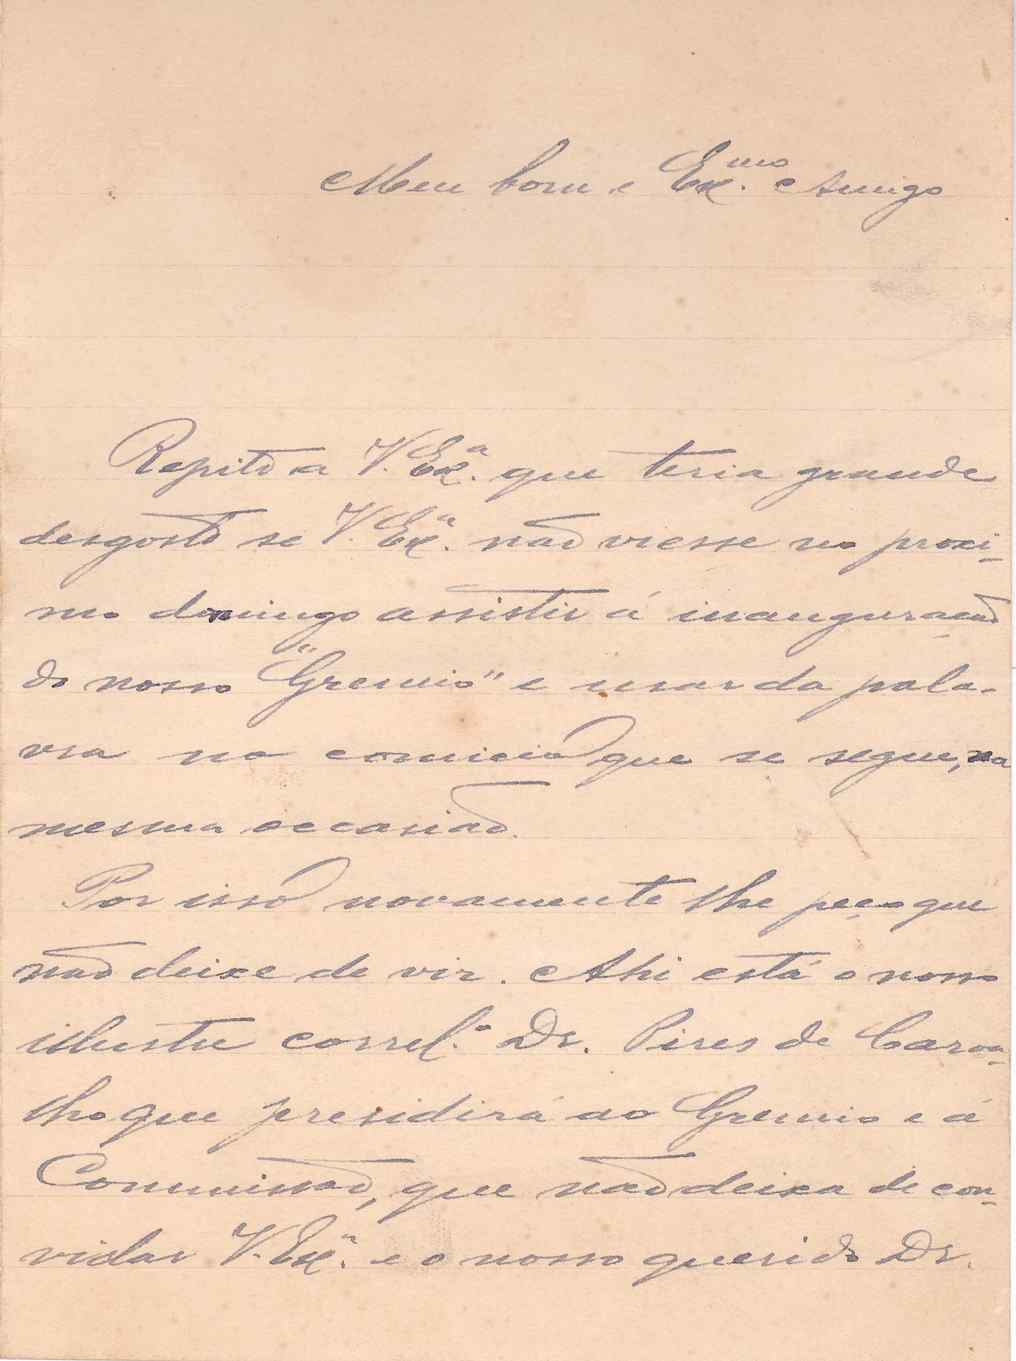 Meu bom e Ex.mo Amigo
Repito a V. Ex.a que teria grande
desgosto se V. Ex.a não viesse no proxi-
mo domingo assistir á inauguração
do nosso "Gremio" e usar da pala-
vra no comicio que se segue, na
mesma occasião.
Por isso novamente lhe peço que
não deixe de vir. Ahi está o nosso
illustre correl.o Dr. Pires de Carva-
lho que presidirá ao Gremio e á
Commissão, que não deixa de con-
vidar V. Ex.a e o nosso querido Dr.